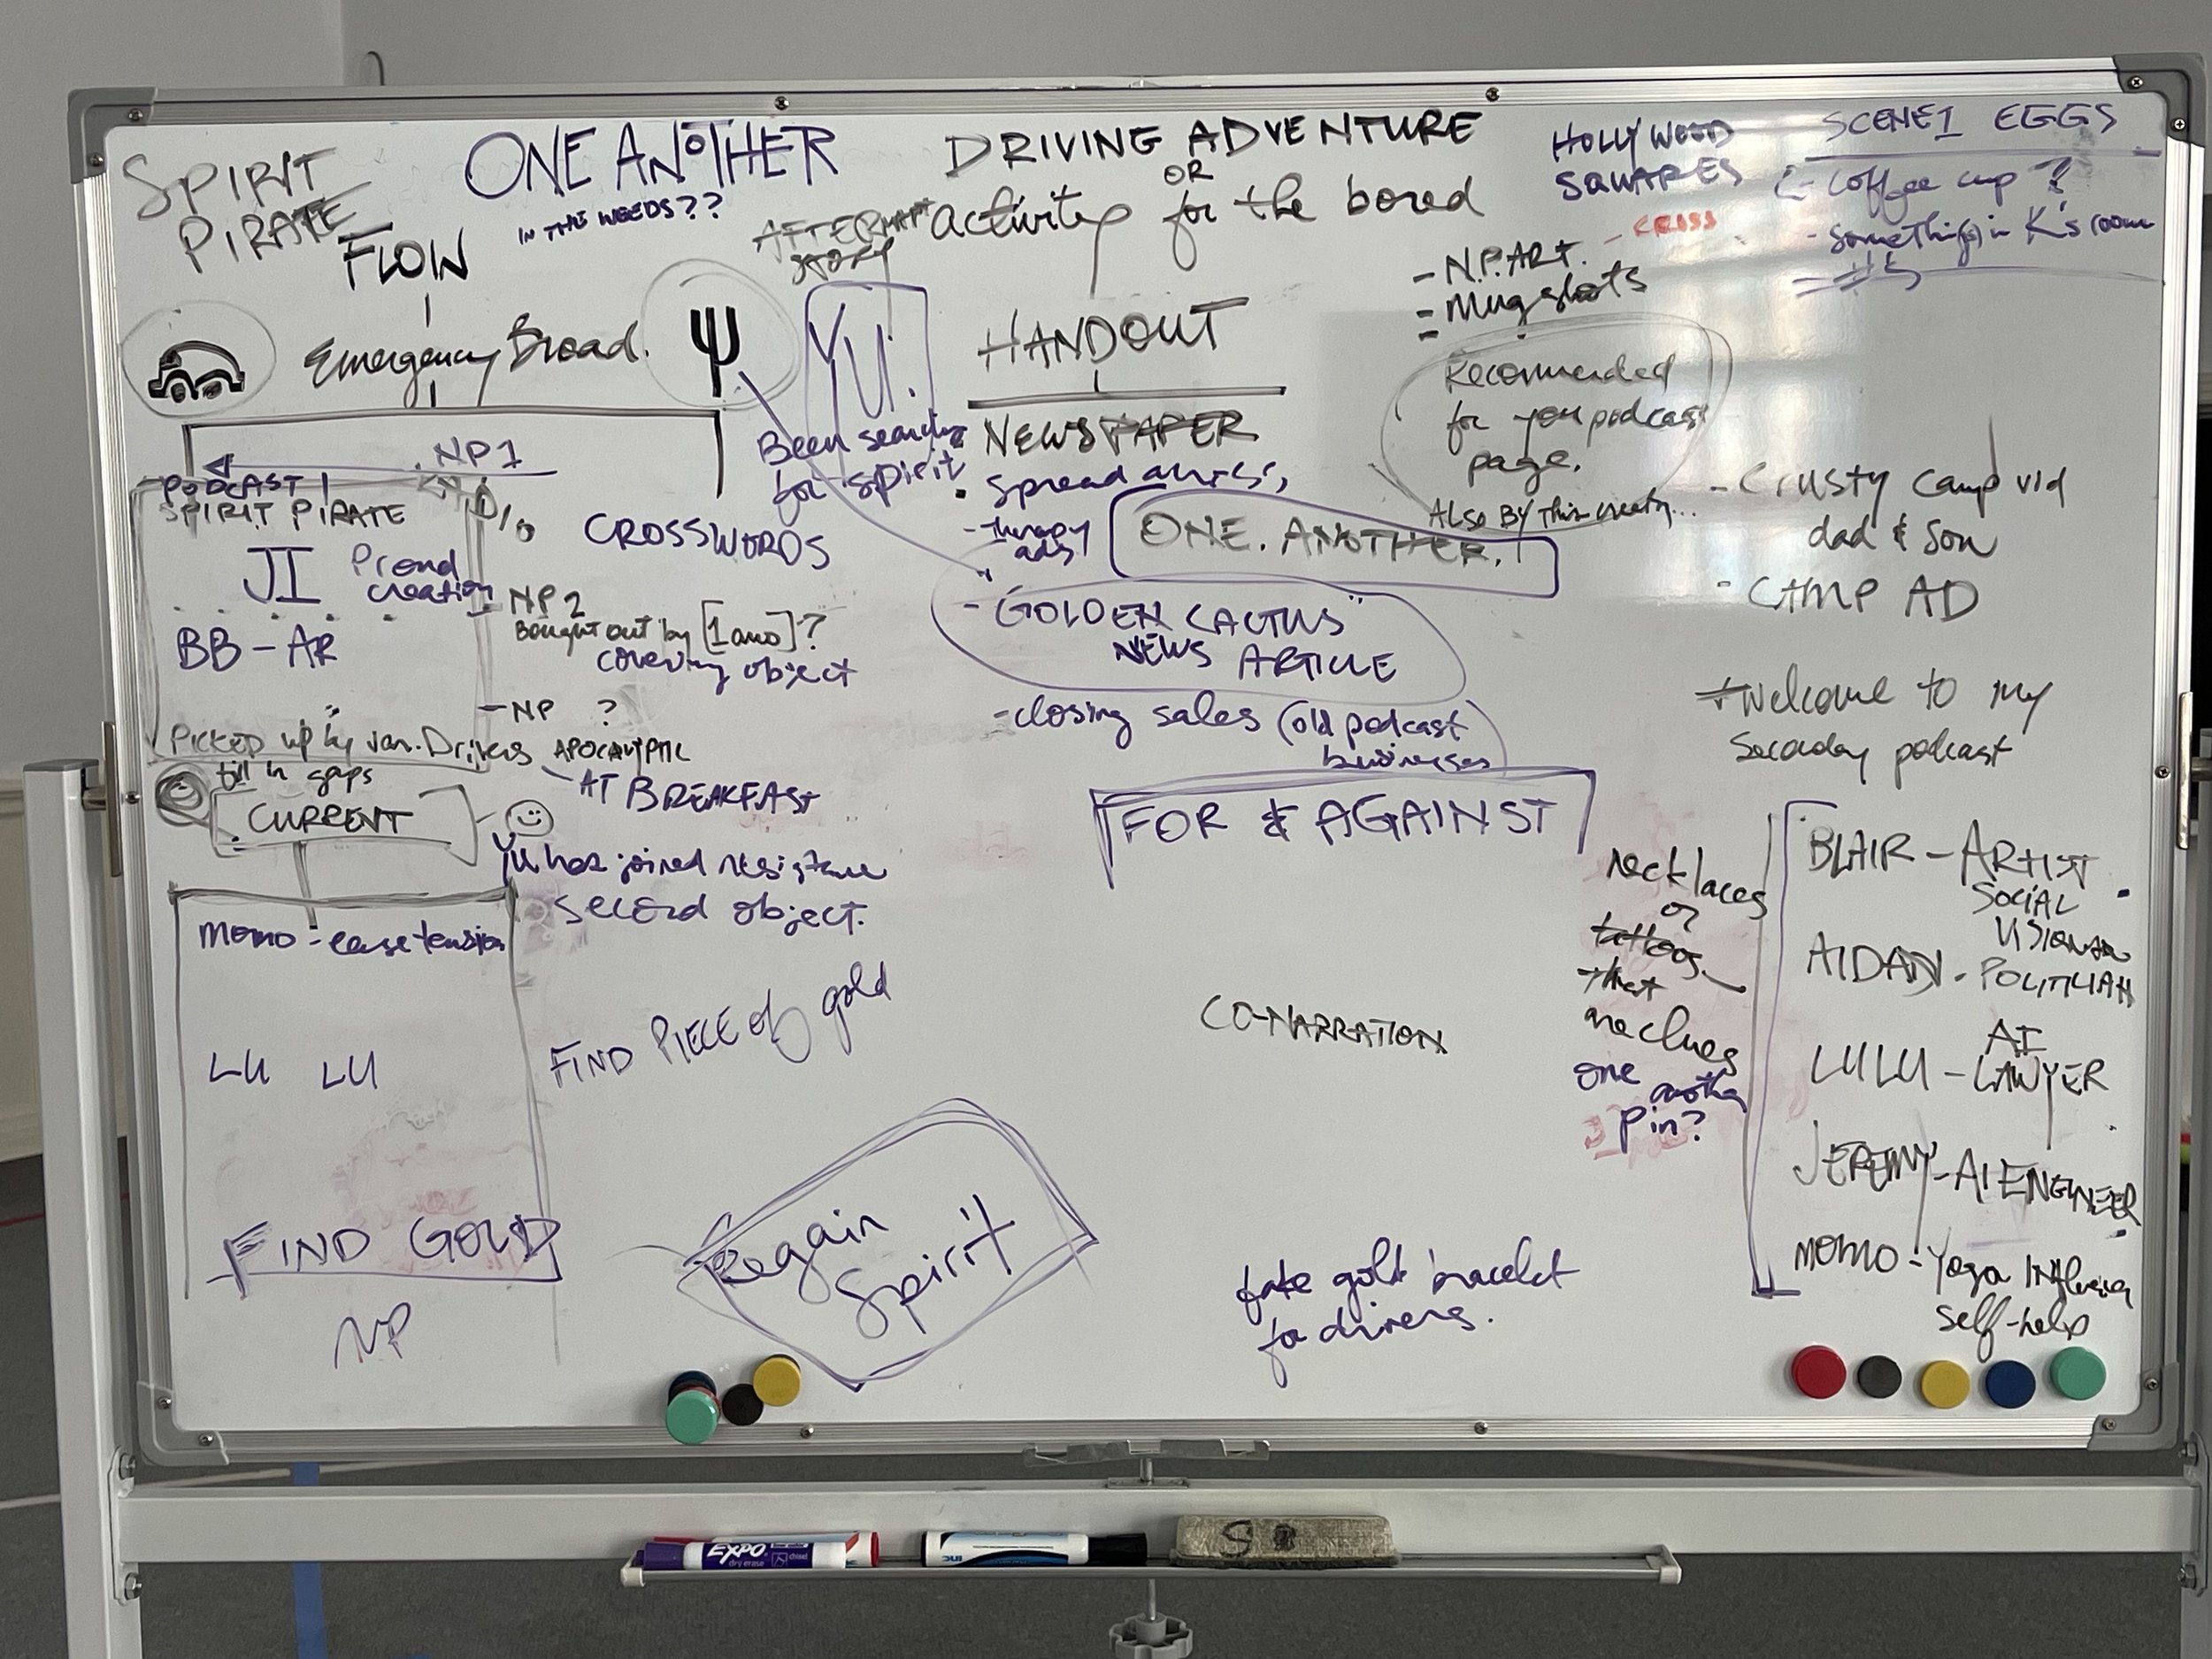 SPIRIT
PIRATE
FLOW
ONE ANOTHER
IN THE WEEDS??
AFTERMATH
STORY
DRIVING ADVENTURE
OR
activity for the bored
HOLLYWOOD
SQUARES
SCENE 1 EGGS
- Coffee cup?
- something(s) in K's room
- N.P. ART.
- CROSS
- Mugshots
Emergency Broad.
YU.
Been searching
for spirit
HANDOUT
NEWSPAPER
• Spread
- therapy
ads
ONE. ANOTHER.
- "GOLDEN CACTUS"
NEWS ARTICLE
- closing sales (old podcast
businesses
Recommended
for you podcast
page.
ALSO BY this
- Crusty Camp vid
dad & son
- CAMP AD
Welcome to my
podcast
NP1
PODCAST 1
SPIRIT PIRATE
JI Proud
creation
BB - AR
CROSSWORDS
- NP2
Bought out by [1 ano]?
covering object
- NP ?
Picked up by van. Drivers
fill in gaps
APOCALYPTIC
- AT BREAKFAST
CURRENT
Yu has joined resistance
second object.
momo - ease tension
LU LU
FIND PIECE of gold
FIND GOLD
NP
Regain
Spirit
FOR & AGAINST
CO-NARRATION
necklaces
or
tattoos
that
are clues
one another
pin?
fake gold bracelet
for drivers.
BLAIR - ARTIST
SOCIAL
AIDAN - POLITICIAN
LULU - AI LAWYER
JEREMY - AI ENGINEER
MOMO - Yoga Influencer
self-help
EXPO
dry erase
chisel